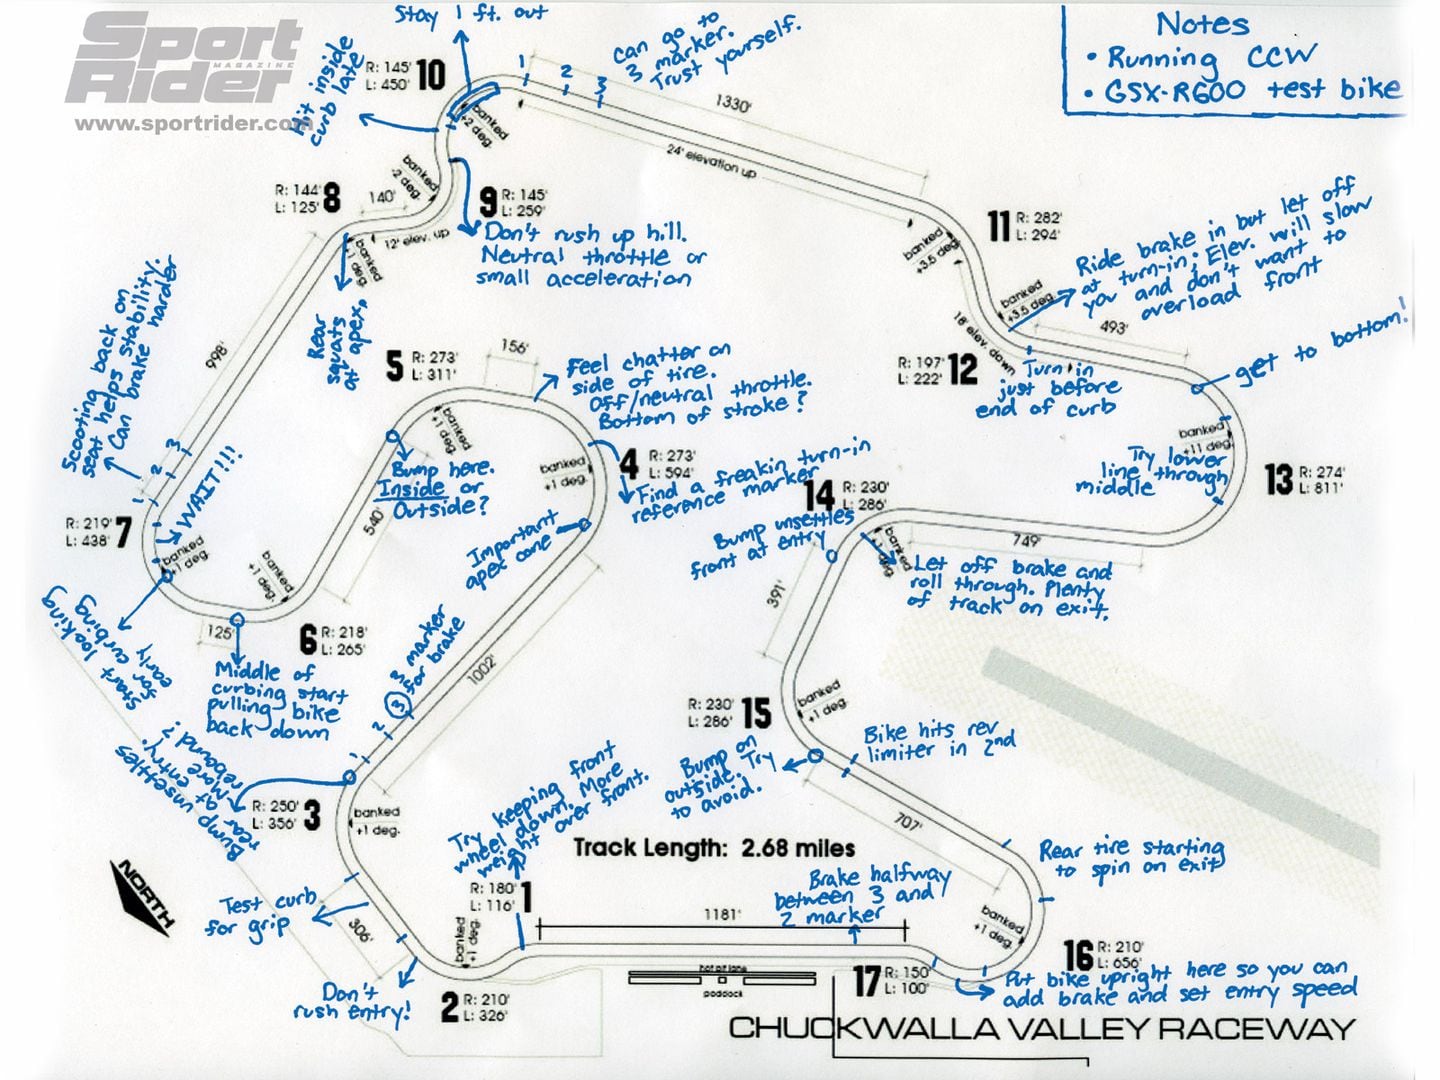 Sport
Rider
MAGAZINE
www.sportrider.com
Stay 1 ft. out
Hit inside
curb late
R: 145'
L: 450'
10
1
2
3
can go to
3 marker.
Trust yourself.
1330'
24' elevation up
Notes
• Running CCW
• GSX-R600 test bike
banked
-2 deg.
banked
-2 deg.
R: 144'
L: 125'
8
140'
12' elev. up
banked
+1 deg.
9
R: 145'
L: 259'
Don't rush up hill.
Neutral throttle or
small acceleration
Rear
squats
at apex,
11
R: 282'
L: 294'
banked
+3.5 deg.
banked
+3.5 deg.
18' elev. down
Ride brake in but let off
at turn-in; Elev. will slow
you and don't want to
overload front
493'
get to bottom!
R: 197'
L: 222'
12
Turn in
just before
end of curb
banked
+11 deg.
Try lower
line through
middle
13
R: 274'
L: 811'
Scooting back on
seat helps stability.
Can brake harder
998'
3
2
1
WAIT!!!
R: 219'
L: 438'
7
banked
+1 deg.
Start looking
for
early curbing
5
R: 273'
L: 311'
156'
banked
+1 deg.
Feel chatter on
side of tire.
Off/neutral throttle.
Bottom of stroke?
Bump here.
Inside or
Outside?
540'
banked
+1 deg.
4
R: 273'
L: 594'
Find a freakin turn-in
reference marker
Important
apex cone
banked
+1 deg.
125'
6
R: 218'
L: 265'
Middle of
curbing start
pulling bike
back down
14
R: 230'
L: 286'
Bump unsettles
front at entry
banked
+1 deg.
749'
Let off brake and
roll through. Plenty
of track on exit.
391'
3 marker
for brake
1002'
3
2
1
Bump unsettles
rear at entry.
More
rebound?
R: 250'
L: 356'
3
banked
+1 deg.
R: 230'
L: 286'
15
banked
+1 deg.
Bump on
outside. Try
to avoid.
Bike hits rev
limiter in 2nd
707'
Try keeping front
wheel down. More
weight over front.
Track Length: 2.68 miles
Rear tire starting
to spin on exit
NORTH
Test curb
for grip
306'
R: 180'
L: 116'
1
banked
+1 deg.
1181'
Brake halfway
between 3 and
2 marker
banked
+1 deg.
16
R: 210'
L: 656'
Don't
rush entry!
2
R: 210'
L: 326'
hot pit lane
paddock
17
R: 150'
L: 100'
Put bike upright here so you can
add brake and set entry speed
CHUCKWALLA VALLEY RACEWAY